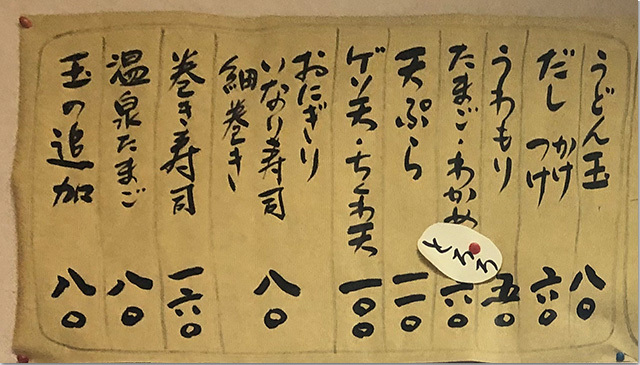 うどん玉 八〇
だし かけ つけ 六〇
うわもり 五〇
たまご・わかめ 六〇
天ぷら 一一〇
ゲソ天・ちくわ天 一〇〇
おにぎり
いなり寿司 八〇
細巻き
巻き寿司 一六〇
温泉たまご 八〇
玉の追加 八〇